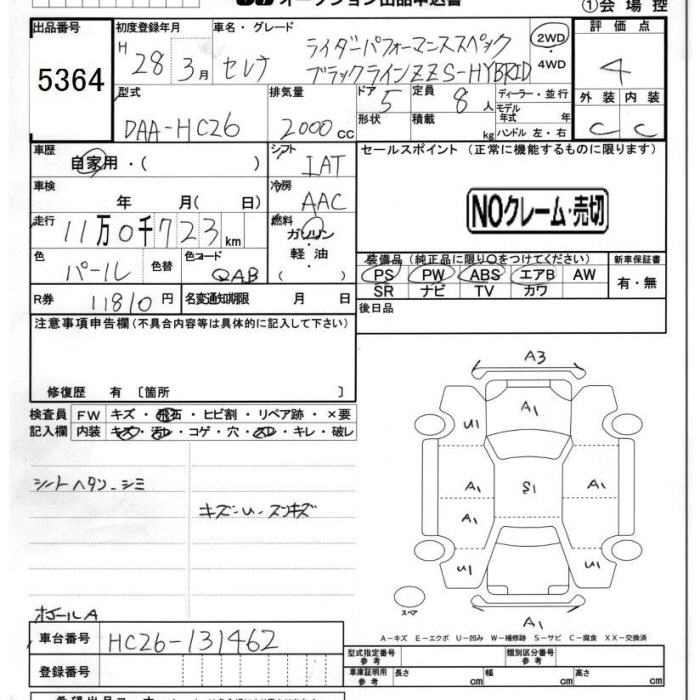 オークション出品申込書
①会場控
出品番号
5364
初度登録年月
H 28 3月
車名・グレード
セレナ
ライダーパフォーマンススペック
ブラックラインZZ S-HYBRID
2WD・4WD
評価点
4
外装 内装
C C
型式
DAA-HC26
排気量
2000cc
ドア 5
形状
定員 8人
積載 kg
ディーラー・並行
モデル年式 年
ハンドル 左・右
車歴
自家用・( )
シフト
IAT
セールスポイント (正常に機能するものに限ります)
車検
年 月( 日)
冷房
AAC
NOクレーム・売切
走行
11万0千723km
燃料
ガソリン
軽油
( )
色
パール
色替
色コード
QAB
装備品(純正品に限り○をつけてください)
PS PW ABS エアB AW
SR ナビ TV カワ
新車保証書
有・無
R券 11810円
名変通知期限 月 日
後日品
注意事項申告欄(不具合内容等は具体的に記入して下さい)
修復歴 有 〔箇所 〕
検査員記入欄
FW キズ・飛石・ヒビ割・リペア跡・×要
内装 キズ・汚レ・コゲ・穴・スレ・キレ・破レ
シートヘタン-シミ
キズ-U-スンキズ
ホイールA
A3
A1
U1 U1
A1 S1 A1
A1
U1 U1
A1
スペア
A-キズ E-エクボ U-凹み W-補修跡 S-サビ C-腐食 XX-交換済
車台番号
HC26-131462
登録番号
型式指定番号 参考
類別区分番号 参考
車庫証明用 参考
長さ cm 幅 cm 高さ cm